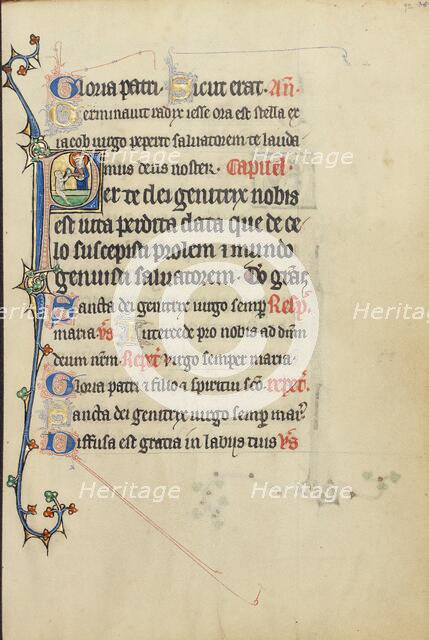 Gloria patri Sicut erat. An̄
Germinavit radix iesse orta est stella ex
iacob uirgo peperit saluatorem te lauda
mus deus noster. Capitłm
Per te dei genitrix nobis
est uita perdita data que de ce
lo suscepisti prolem ⁊ mundo
genuisti saluatorem. Do grās
Sancta dei genitrix uirgo semp̄ Resp̄.
maria. v̄s Intercede pro nobis ad dñm
deum nr̄m. Repet̄ Uirgo semper maria.
Gloria patri ⁊ filio ⁊ spiritui sc̄o. repet̄.
Sancta dei genitrix uirgo semp̄ mar̄
Diffusa est gratia in labijs tuis v̄s
Heritage Heritage
Images Images
Heritage Heritage Heritage
Images Images Images
Heritage Heritage
Images Images